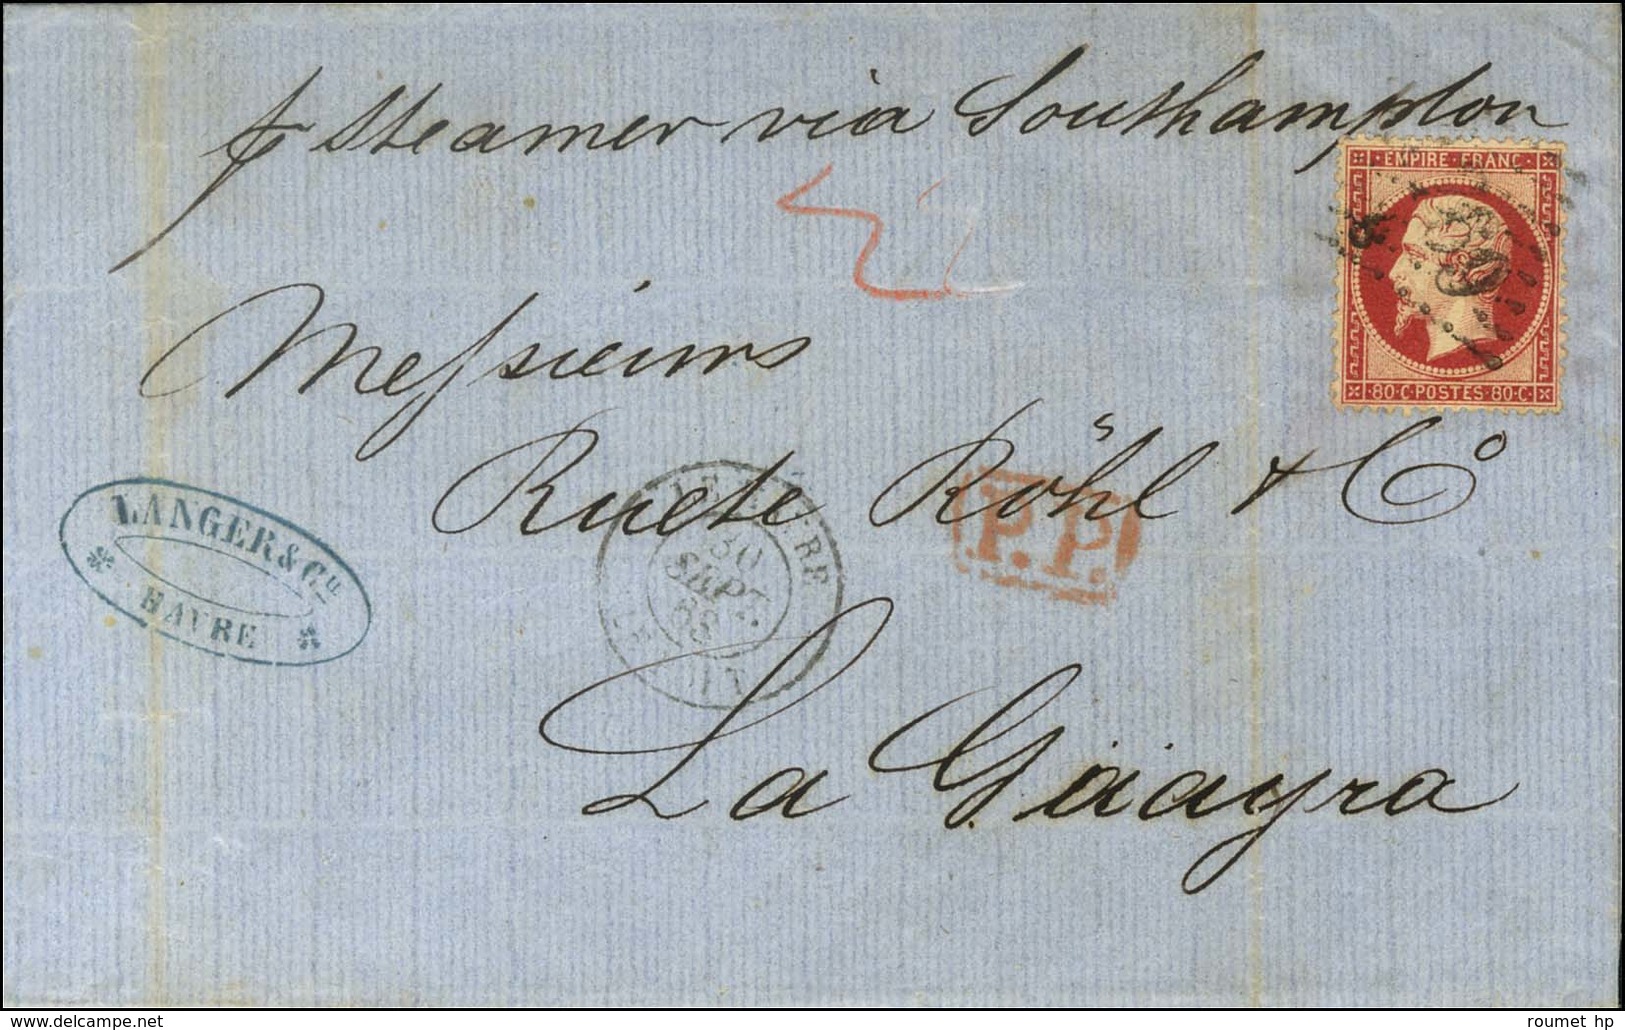 p steamer via Southampton
EMPIRE FRANC
80·C·POSTES·80·C·
Messieurs
Ruete Röhl & Co
P.P.
LANGER & Co
HAVRE
LE HAVRE
30
SEPT.
68
La Guayra
delcampe.net
roumet hp